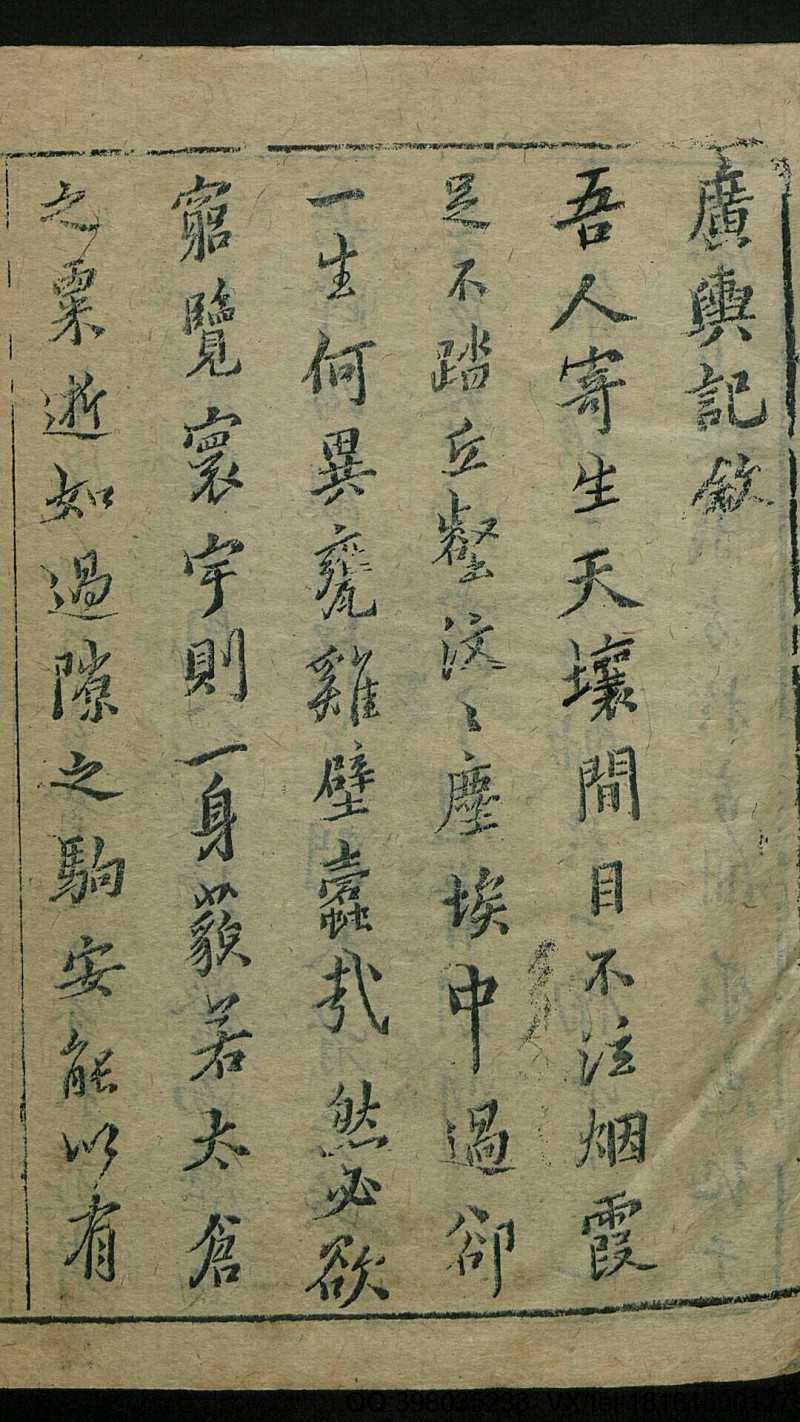 廣輿記敘
吾人寄生天壤間目不注烟霞
足不踏丘壑汶〻塵埃中過卻
一生何異甕雞壁蠹哉然必欲
窮覽寰宇則一身藐若太倉
之粟逝如過隙之駒安能以有